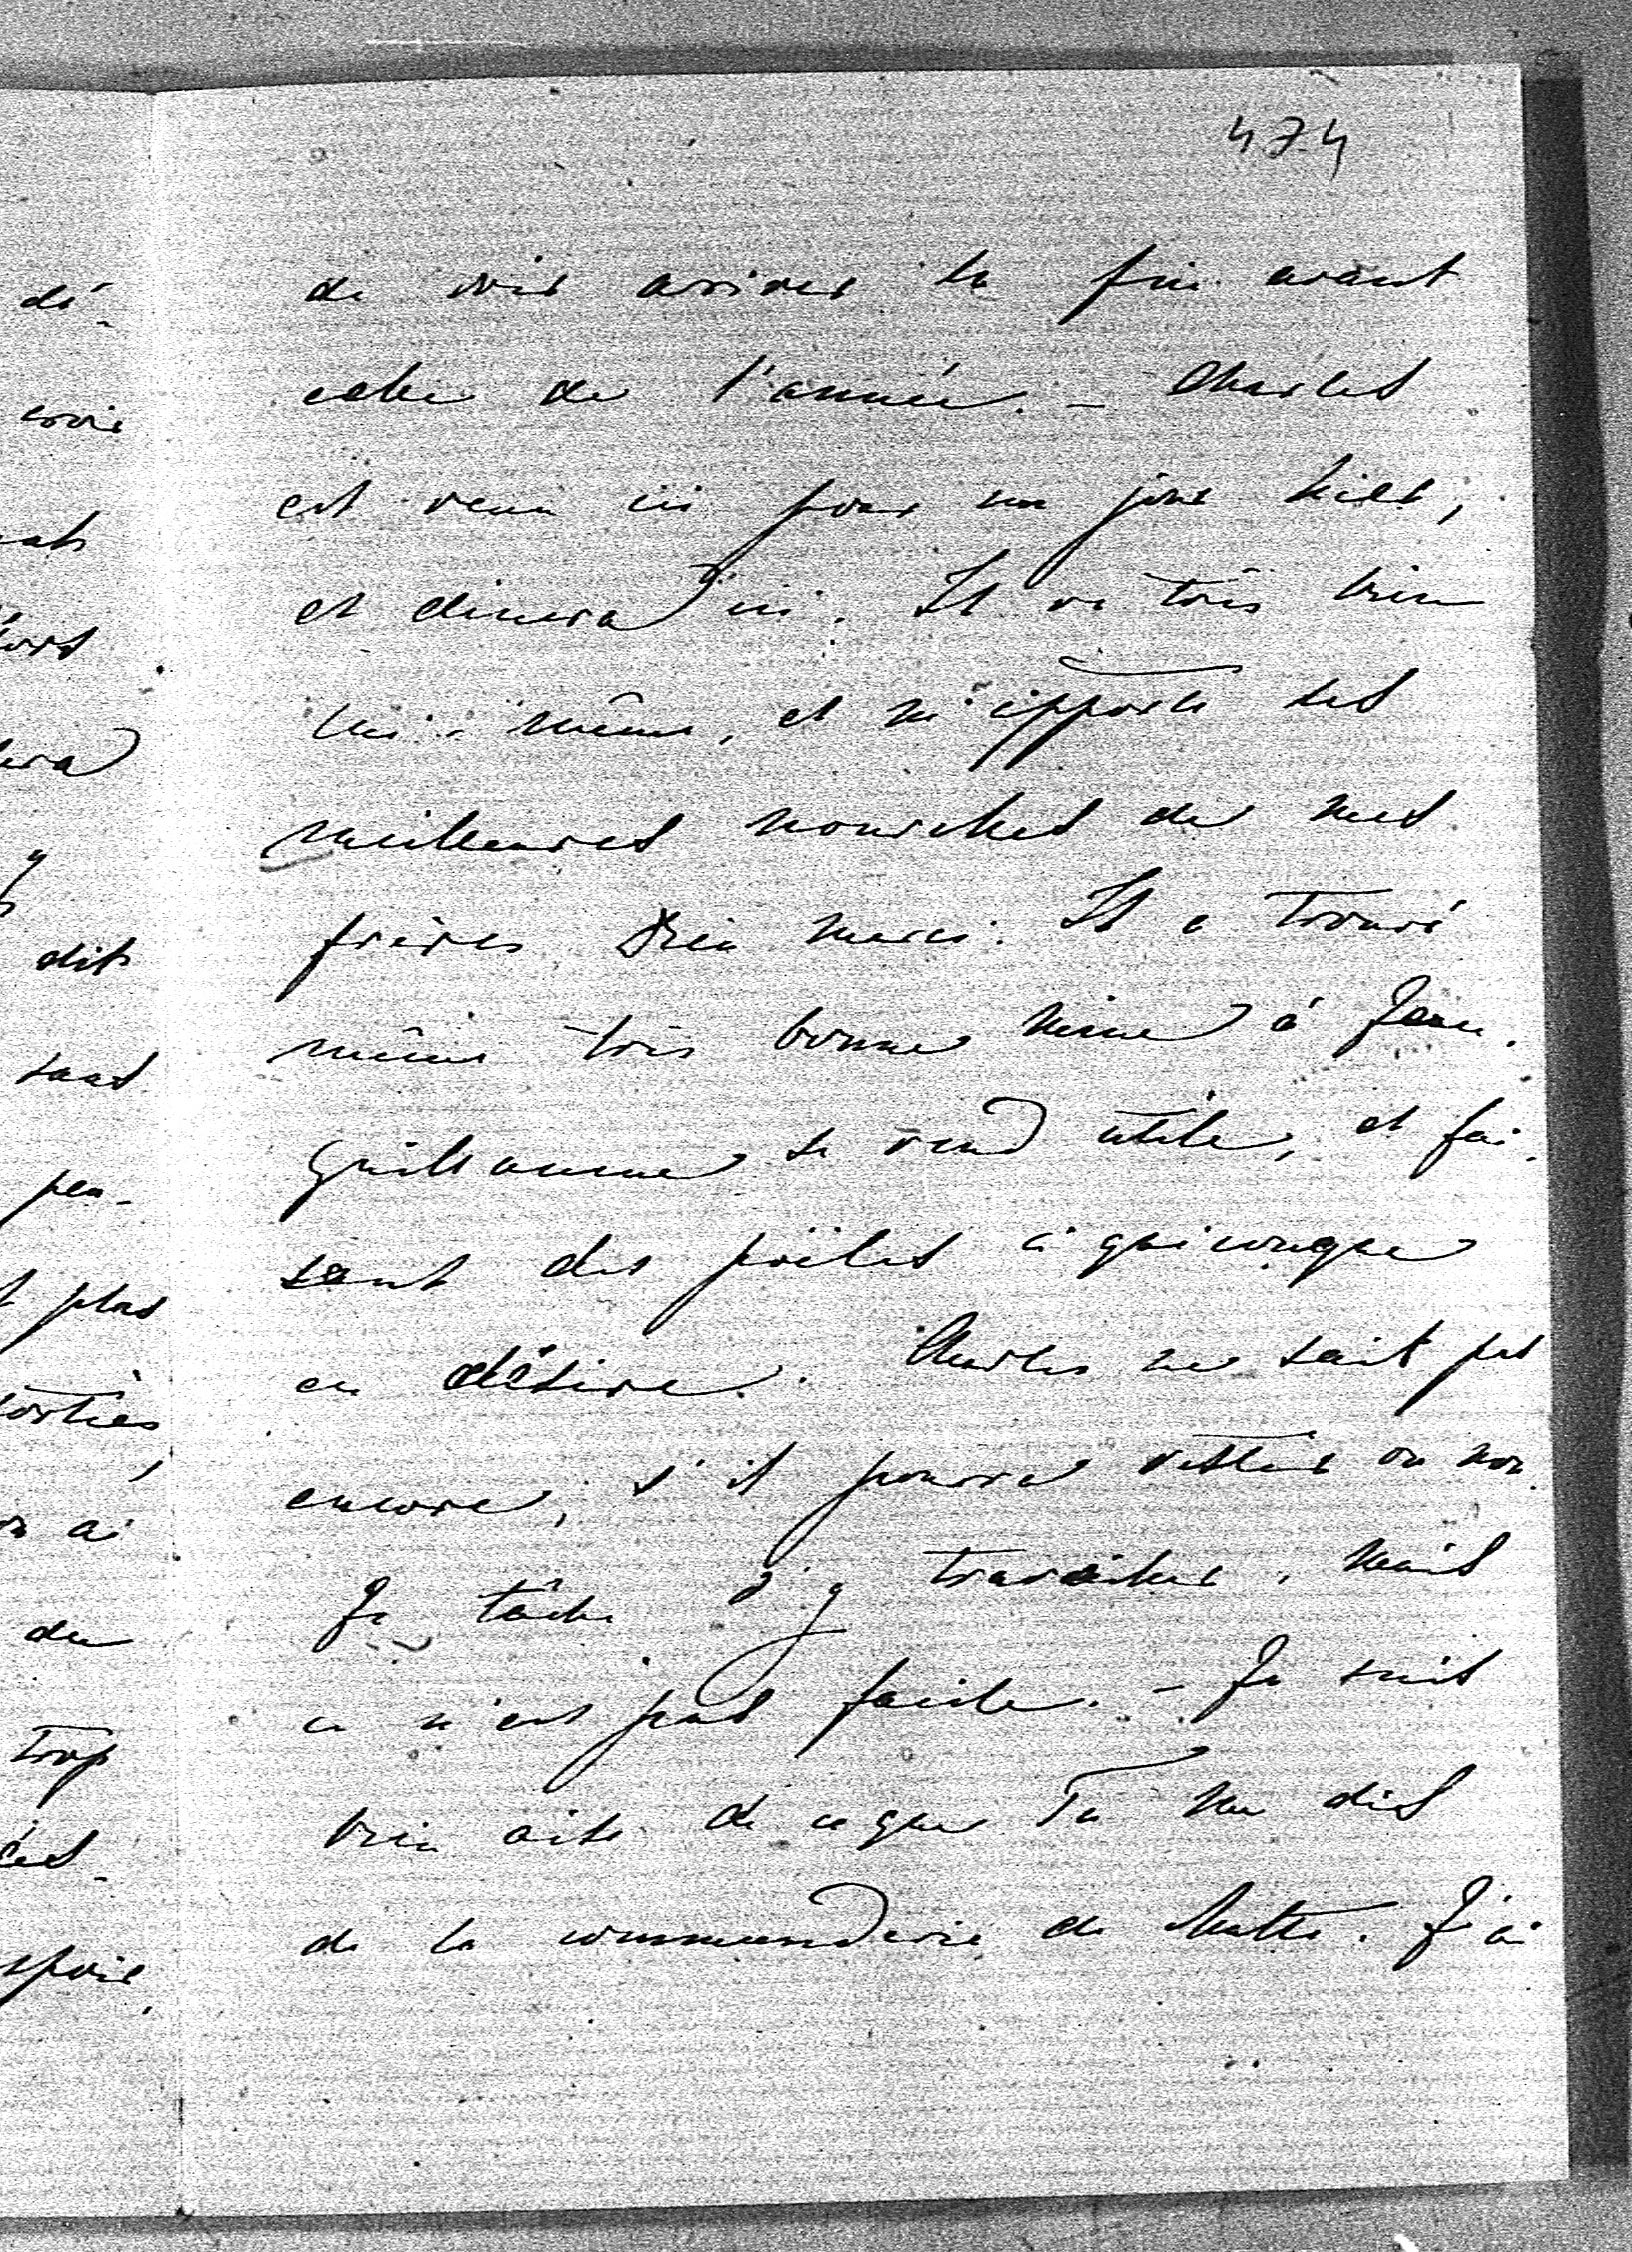 474
de voir arriver la fin avant
celle de l'année. – Charles
est venu ici pour un jour hier,
et dinera ici. Il va très bien
lui-même, et m'apporte des
meilleures nouvelles de mes
frères Dieu merci. Il a trouvé
même très bonne mine à Jean.
Guillaume se rend utile, et fai-
sant des poëles à quiconque
en désire. Charles ne sait pas
encore, s'il pourra rester ou non.
Je tâche d'y travailler, mais
ce n'est pas facile. – Je suis
bien aise de ce que Tu me dis
de la commanderie de Malte. J'ai
dé-
croire
dit
sans
peu-
plus
sorties,
ai
de
trop